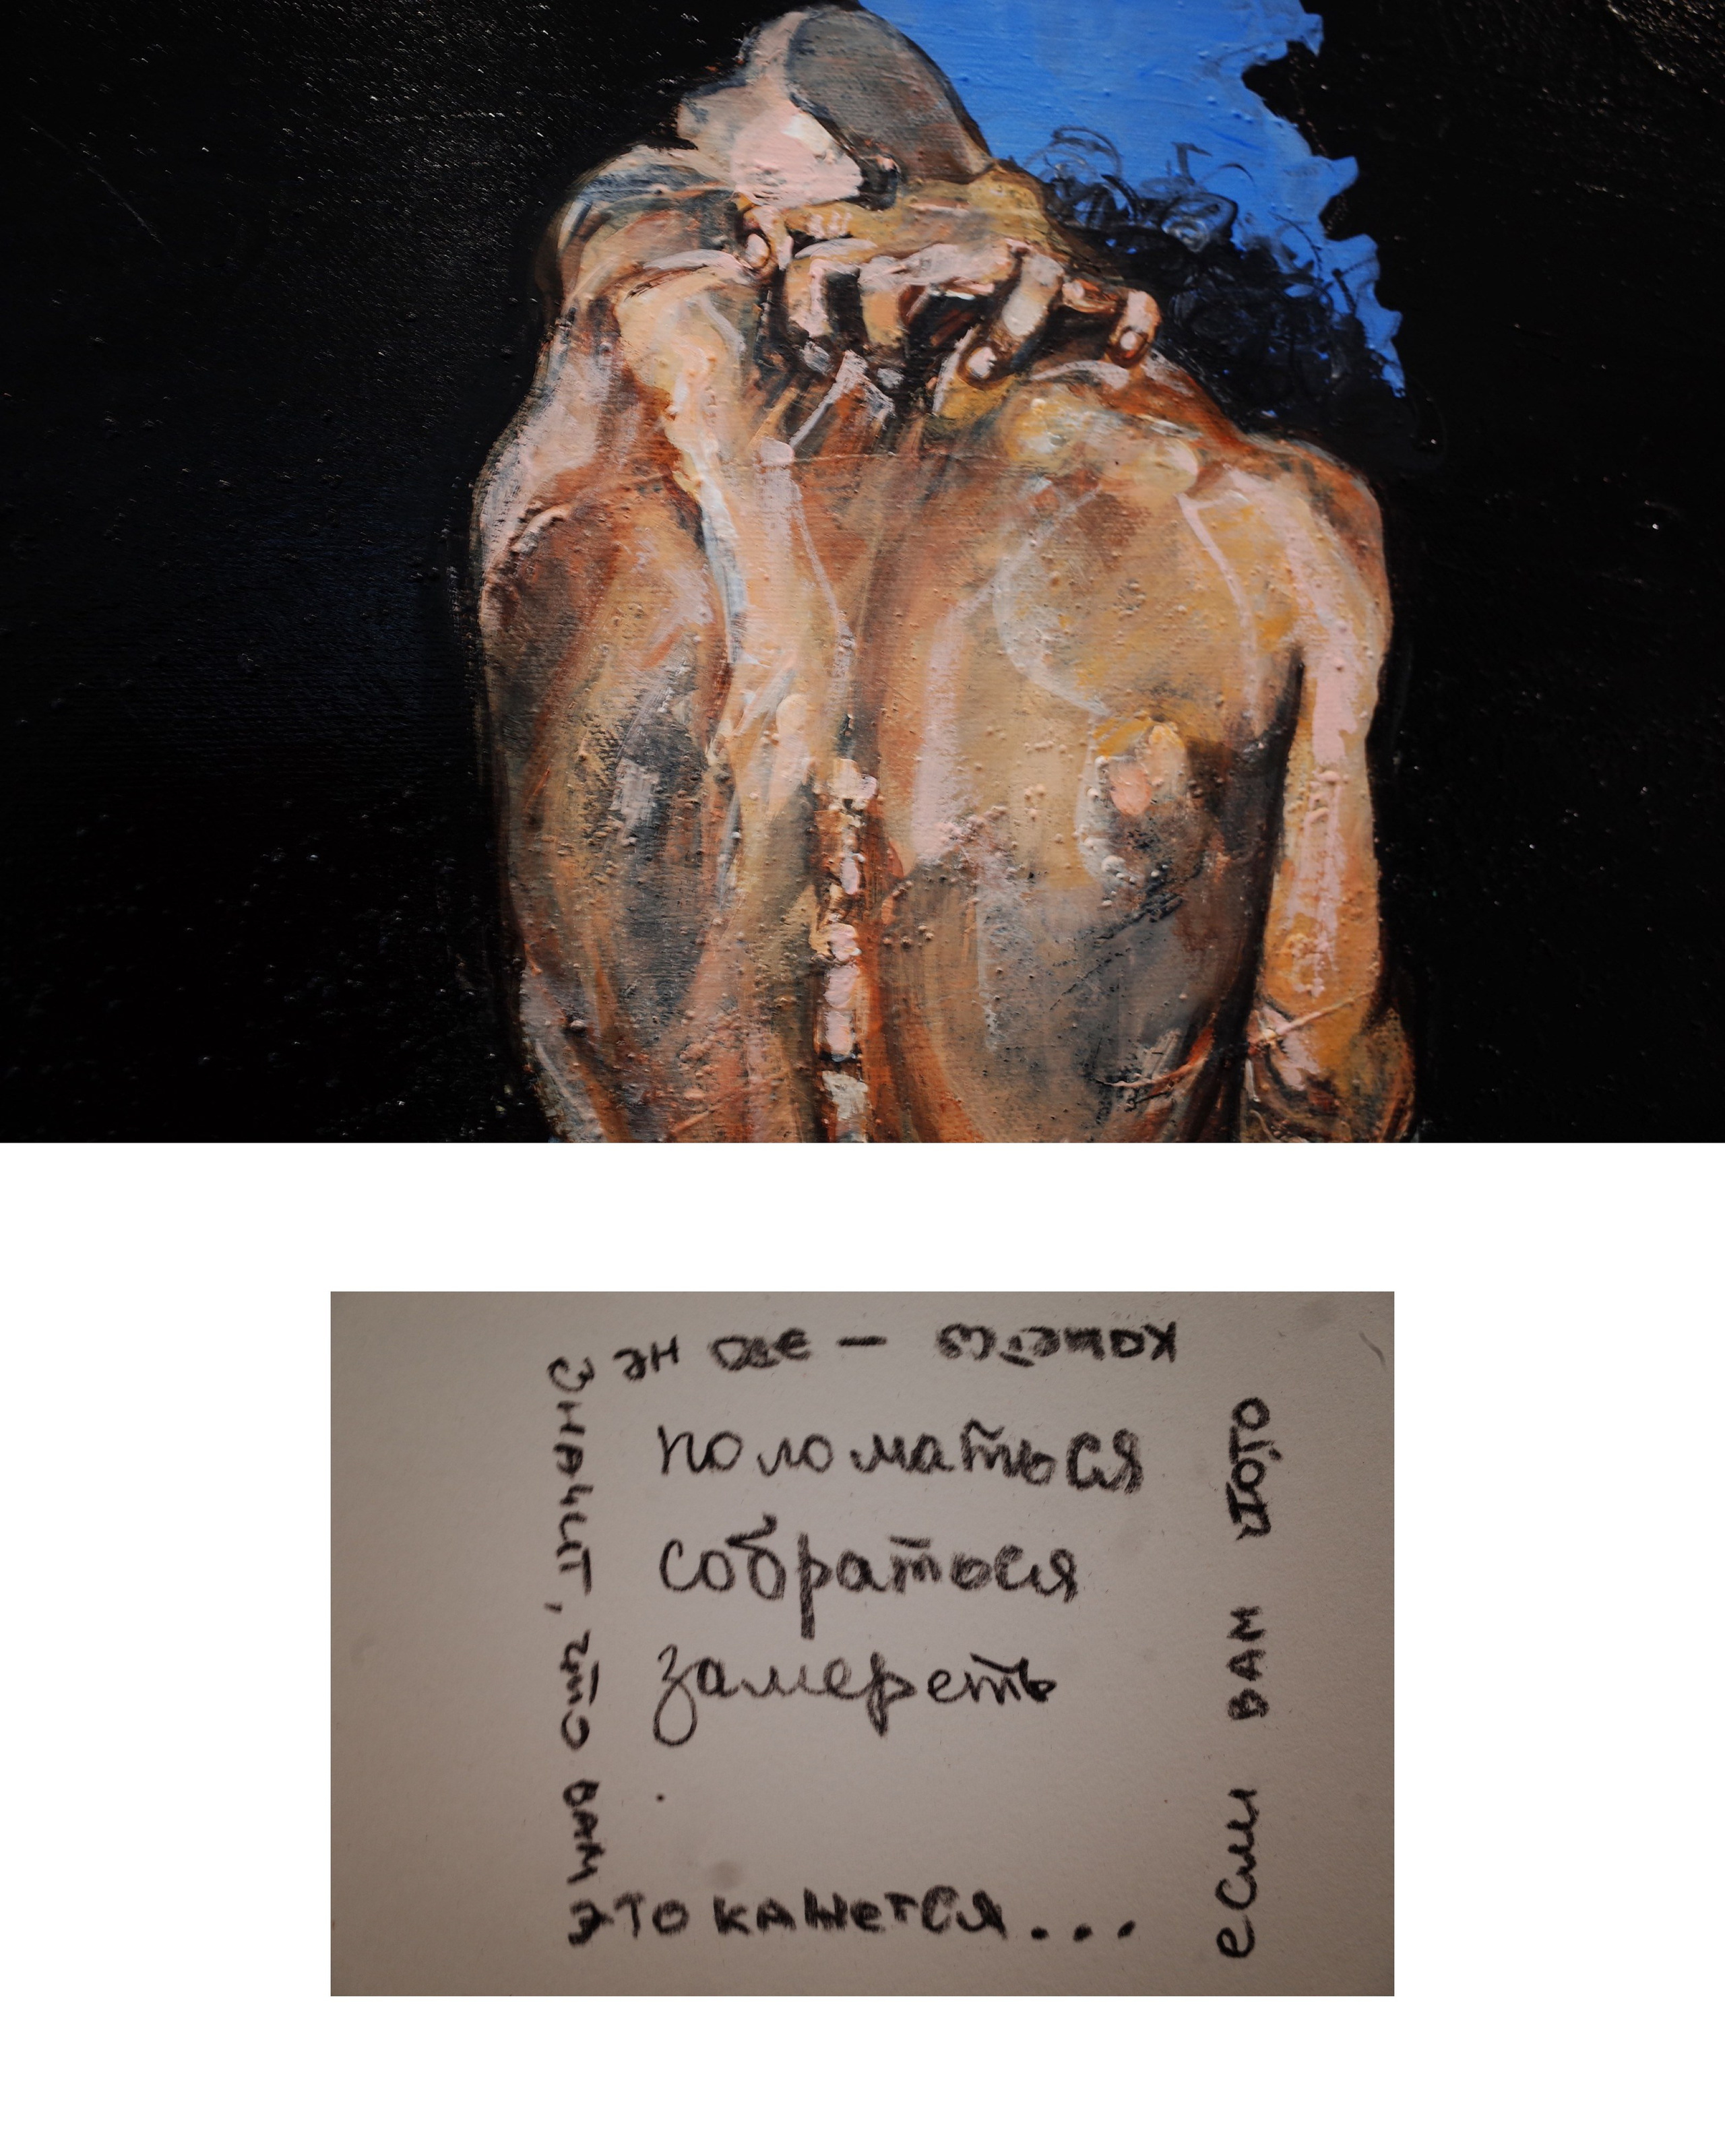 поломаться
собраться
замереть
.
если вам что-то
кажется – это не
значит, что вам
это кажется...